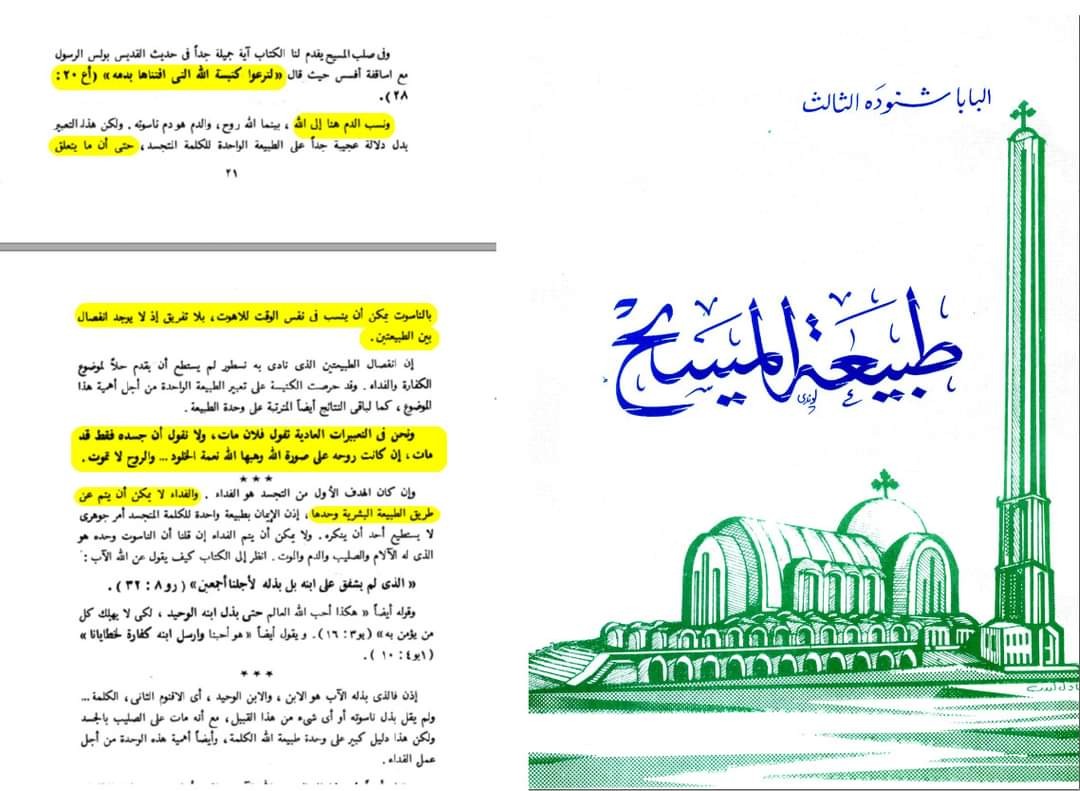 وفى صلب المسيح يقدم لنا الكتاب آية جميلة جداً فى حديث القديس بولس الرسول
مع اساقفة أفسس حيث قال «لترعوا كنيسة الله التى اقتناها بدمه» (أع ٢٠ :
٢٨).
ونسب الدم هنا إلى الله ، بينما الله روح، والدم هو دم ناسوته. ولكن هذا التعبير
يدل دلالة عجيبة جداً على الطبيعة الواحدة للكلمة المتجسد، حتى أن ما يتعلق
٢١
بالناسوت يمكن أن ينسب فى نفس الوقت للاهوت، بلا تفريق إذ لا يوجد انفصال
بين الطبيعتين.
إن انفصال الطبيعتين الذى نادى به نسطور لم يستطع أن يقدم حلاً لموضوع
الكفارة والفداء . وقد حرصت الكنيسة على تعبير الطبيعة الواحدة من أجل أهمية هذا
الموضوع ، كما لباقى النتائج أيضاً المترتبة على وحدة الطبيعة.
ونحن فى التعبيرات العادية نقول فلان مات، ولا نقول أن جسده فقط قد
مات ، إن كانت روحه على صورة الله وهبها الله نعمة الخلود ... والروح لا تموت .
***
وإن كان الهدف الأول من التجسد هو الفداء . والفداء لا يمكن أن يتم عن
طريق الطبيعة البشرية وحدها، إذن الإيمان بطبيعة واحدة للكلمة المتجسد أمر جوهرى
لا يستطيع أحد أن ينكره . ولا يمكن أن يتم الفداء إن قلنا أن الناسوت وحده هو
الذى له الآلام والصليب والدم والموت . انظر إلى الكتاب كيف يقول عن الله الآب :
« الذى لم يشفق على ابنه بل بذله لأجلنا أجمعين» ( رو ٨ : ٣٢ ) .
وقوله أيضاً « هكذا أحب الله العالم حتى بذل ابنه الوحيد ، لكى لا يهلك كل
من يؤمن به» (يو٣ : ١٦) . ويقول أيضاً « هو أحبنا وارسل ابنه كفارة لخطايانا »
(١يو٤ : ١٠ ) .
***
إذن فالذى بذله الآب هو الابن ، والابن الوحيد ، أى الاقنوم الثانى ، الكلمة ...
ولم يقل بذل ناسوته أو أى شىء من هذا القبيل، مع أنه مات على الصليب بالجسد
ولكن هذا دليل كبير على وحدة طبيعة الله الكلمة، وأيضاً أهمية هذه الوحدة من أجل
عمل الفداء .
البابا شنوده الثالث
طبيعة المسيح